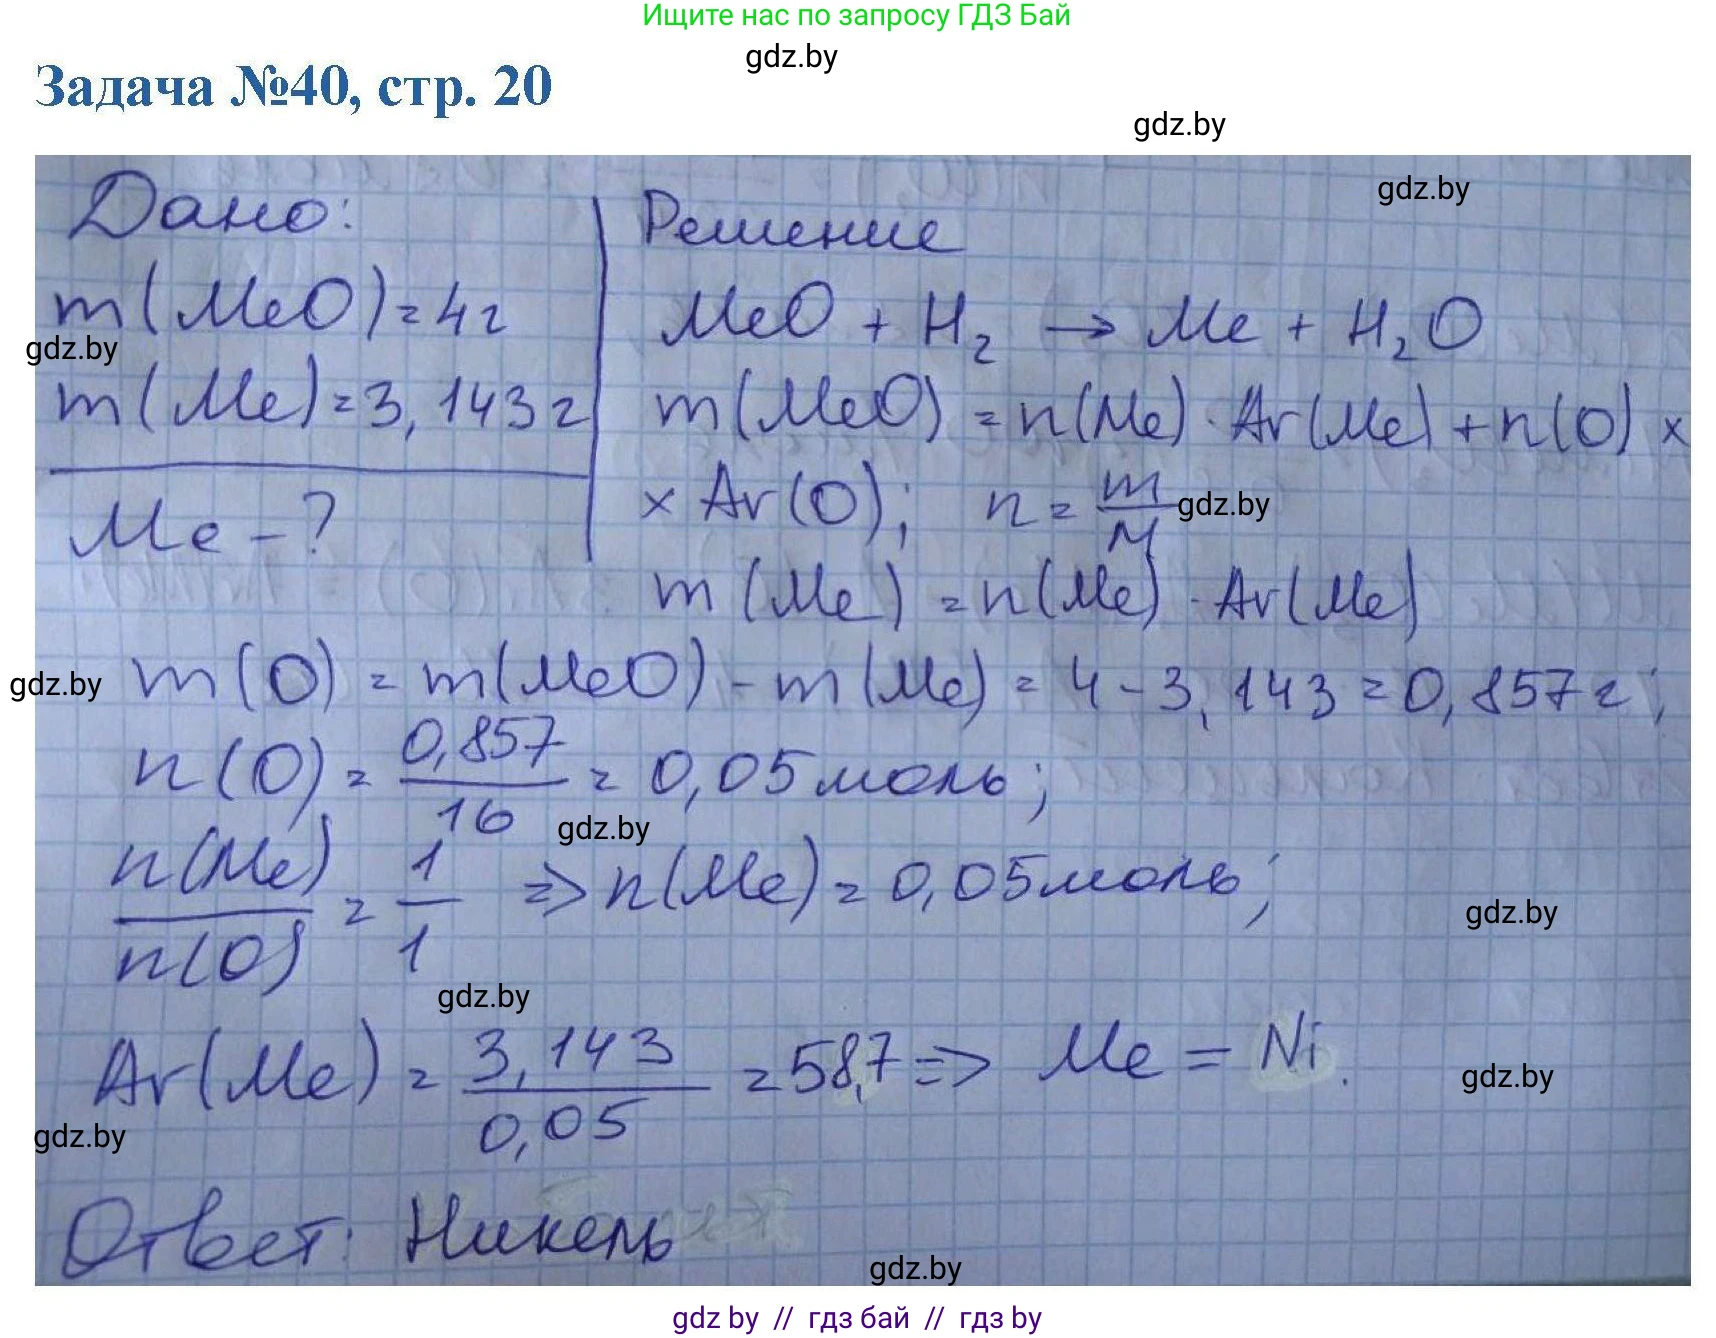 Ищите нас по запросу ГДЗ Бай
gdz.by
Задача №40, стр. 20
gdz.by
gdz.by
Дано:
m(MeO)=4г
gdz.by
m(Me)=3,143г
Me - ?
Решение
MeO + H₂ → Me + H₂O
m(MeO) = n(Me) · Ar(Me) + n(O) ×
× Ar(O); n = m/M
gdz.by
m(Me) = n(Me) · Ar(Me)
gdz.by
m(O) = m(MeO) - m(Me) = 4 - 3,143 = 0,857г;
n(O) = 0,857/16 = 0,05 моль;
gdz.by
n(Me)/n(O) = 1/1 => n(Me) = 0,05 моль;
gdz.by
gdz.by
Ar(Me) = 3,143/0,05 = 58,7 => Me = Ni.
gdz.by
gdz.by
Ответ: Никель
gdz.by
gdz by // гдз бай // гдз by